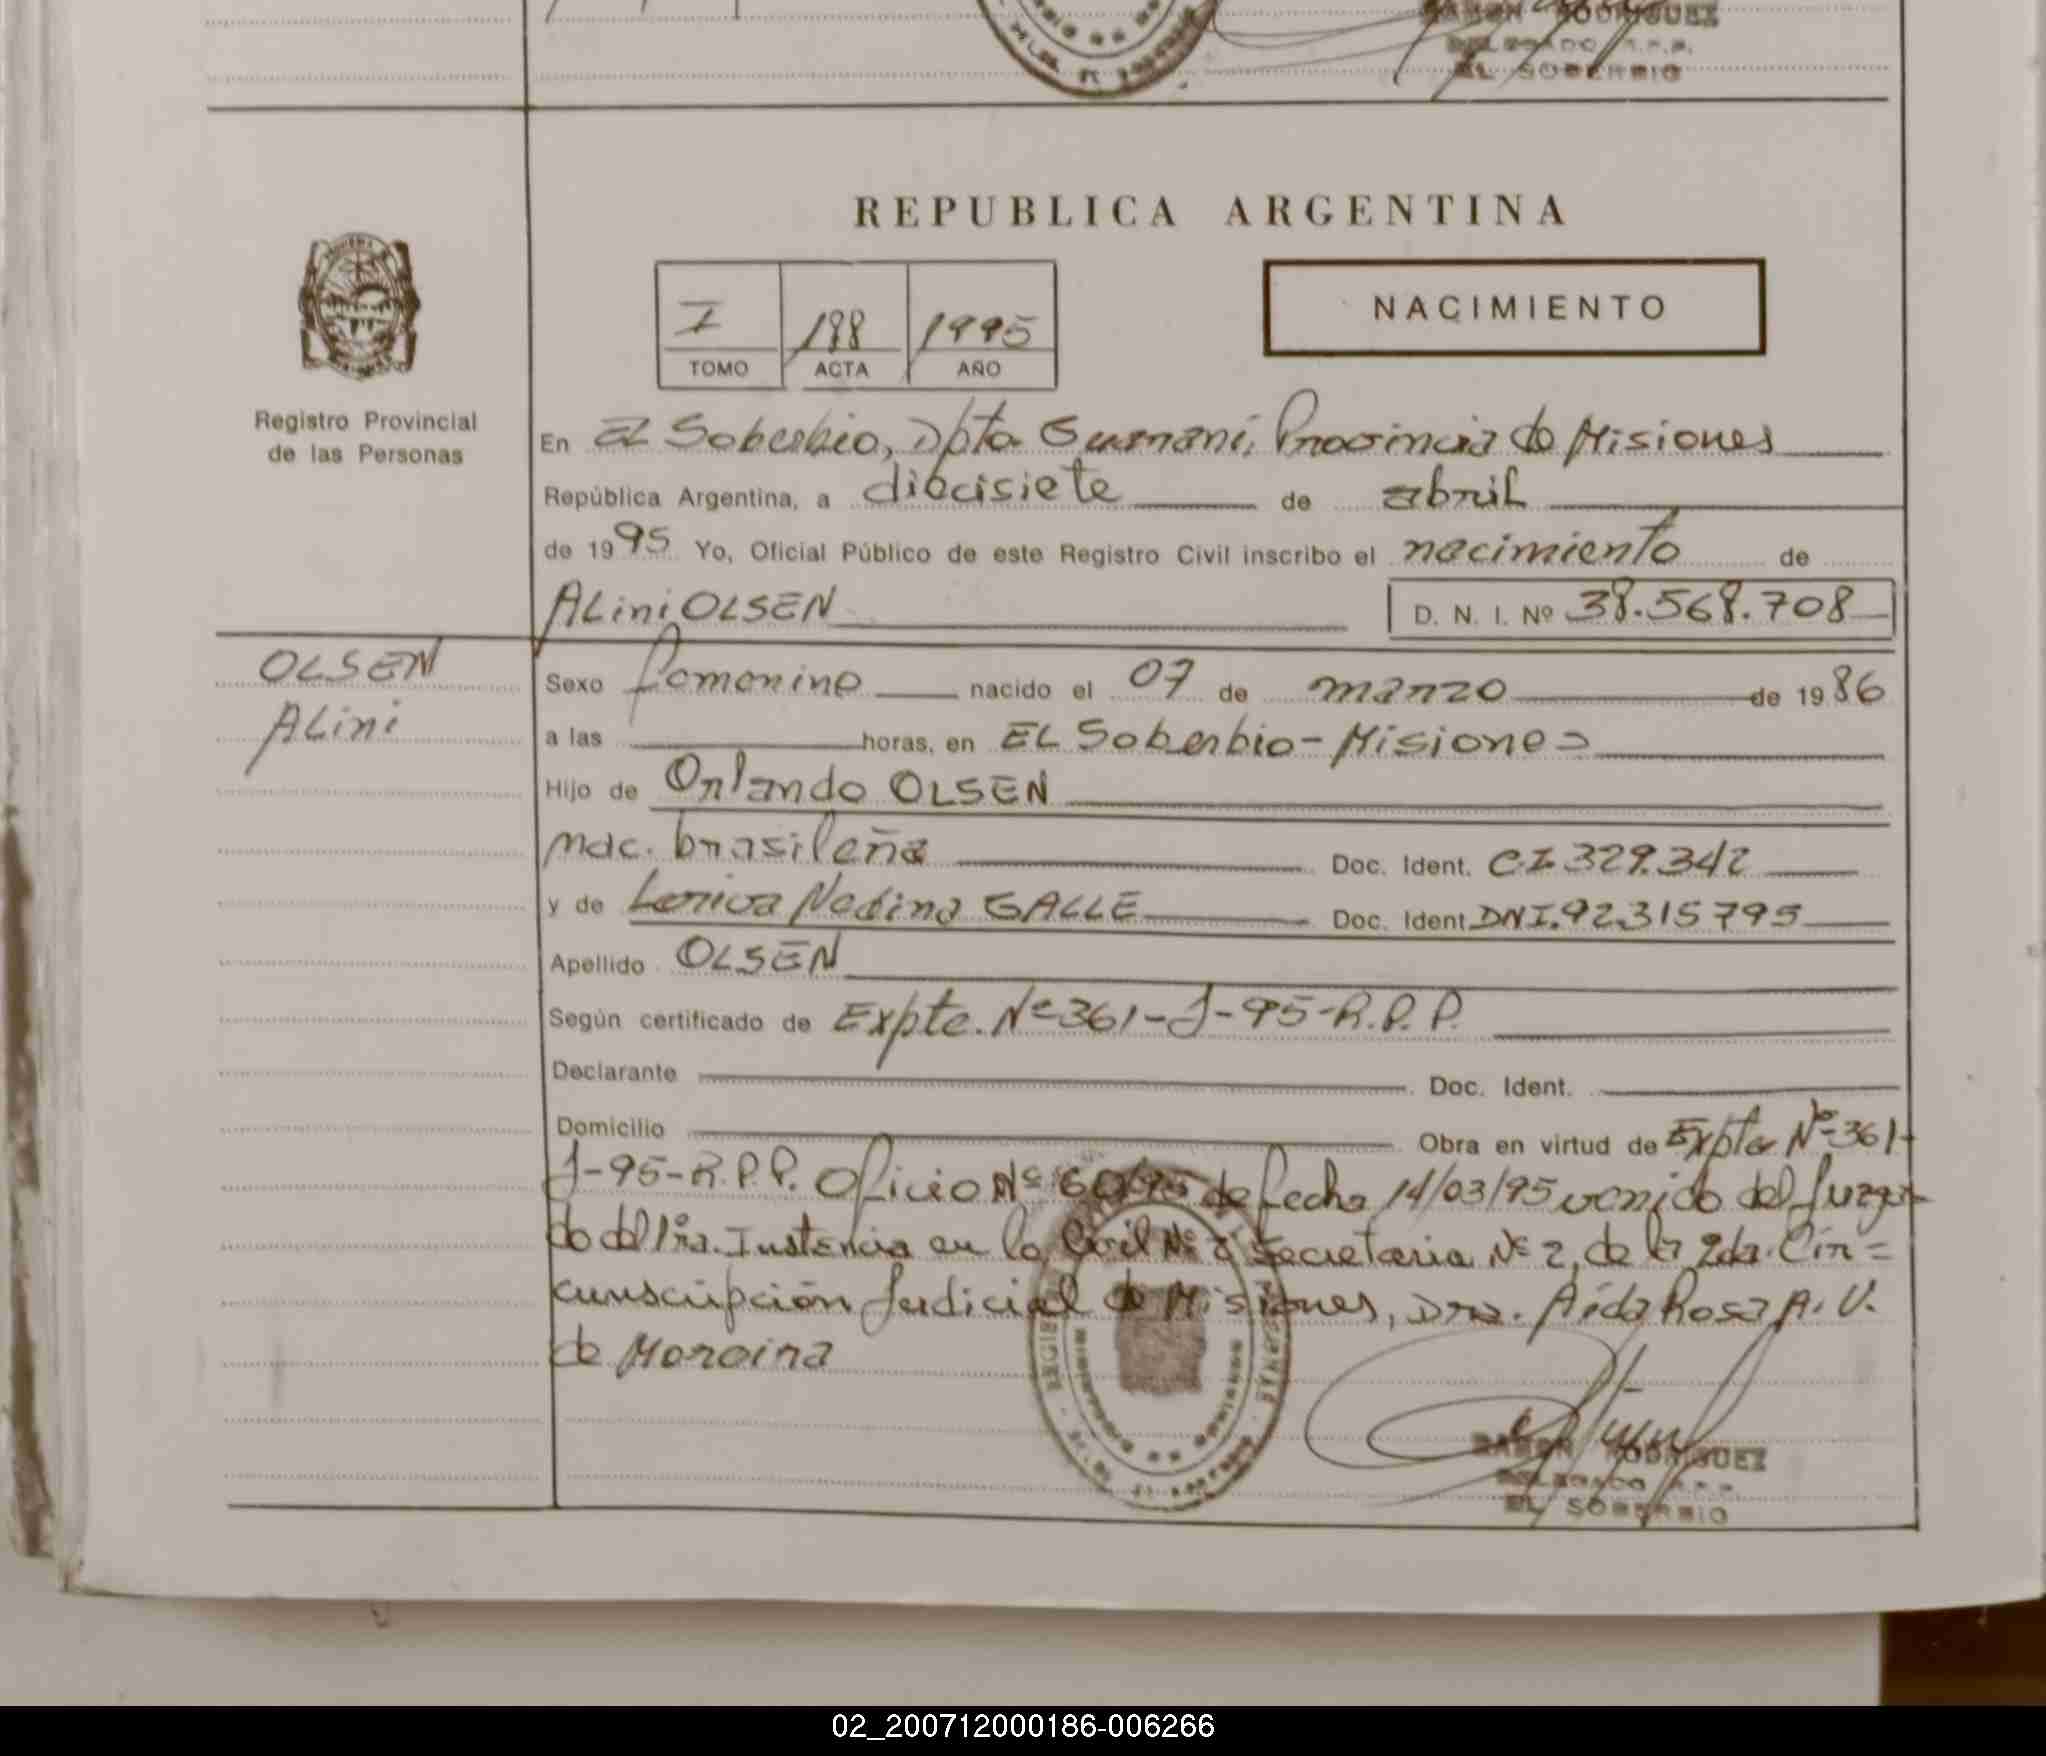 RAMON RODRIGUEZ
EL SOBERBIO
REPUBLICA ARGENTINA
I 188 1995
TOMO ACTA AÑO
NACIMIENTO
Registro Provincial
de las Personas
En El Soberbio, Dpto Guarani, Provincia de Misiones
República Argentina, a diecisiete de abril
de 1995 Yo, Oficial Público de este Registro Civil inscribo el nacimiento de
ALini OLSEN D. N. I. Nº 38.568.708
OLSEN
ALini
Sexo femenino nacido el 07 de marzo de 1986
a las horas, en EL Soberbio - Misiones
Hijo de Orlando OLSEN
nac. brasileña Doc. Ident. CI 329.342
y de Leniva Nedina GALLE Doc. Ident. DNI. 92.315795
Apellido OLSEN
Según certificado de Expte. Nº 361-J-95-R.P.P.
Declarante Doc. Ident.
Domicilio Obra en virtud de Expte Nº 361-
J-95-R.P.P. Oficio Nº de fecha 14/03/95 venido del Juzga-
do del 1ra. Instancia en lo Civil Nº 2 Secretaria Nº 2, de la 2da. Cir=
cunscripción Judicial de Misiones, Dra. Aída Rosa A. V.
de Moreira
RAMON RODRIGUEZ
EL SOBERBIO
02_200712000186-006266